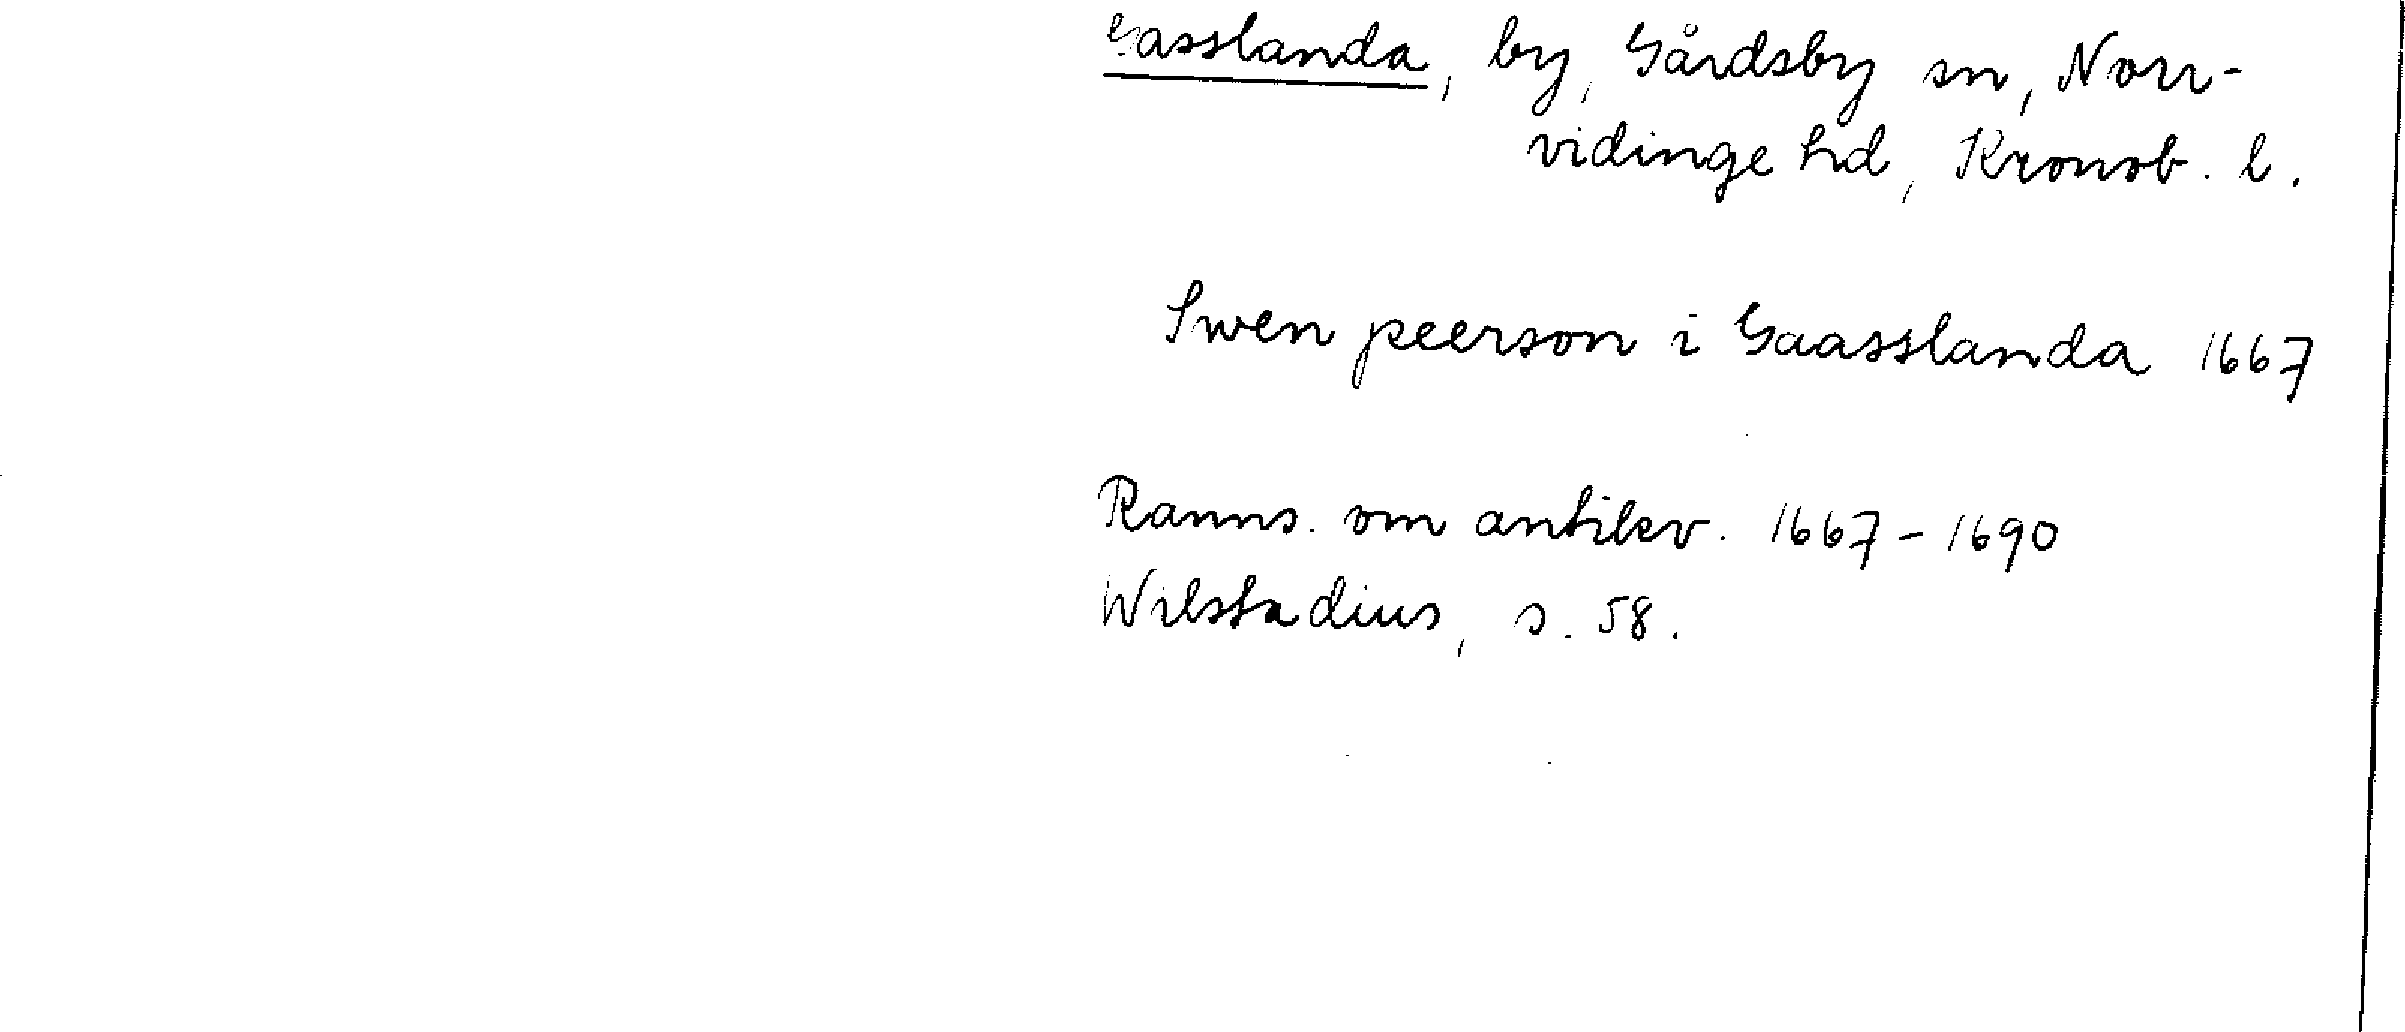 Gasslanda, by, Gårdsby sn, Norr-
vidinge hd, Kronob. l.
Swen peerson i Gaasslanda 1667
Ranns. om antikv. 1667-1690
Wilstadius, s. 58.